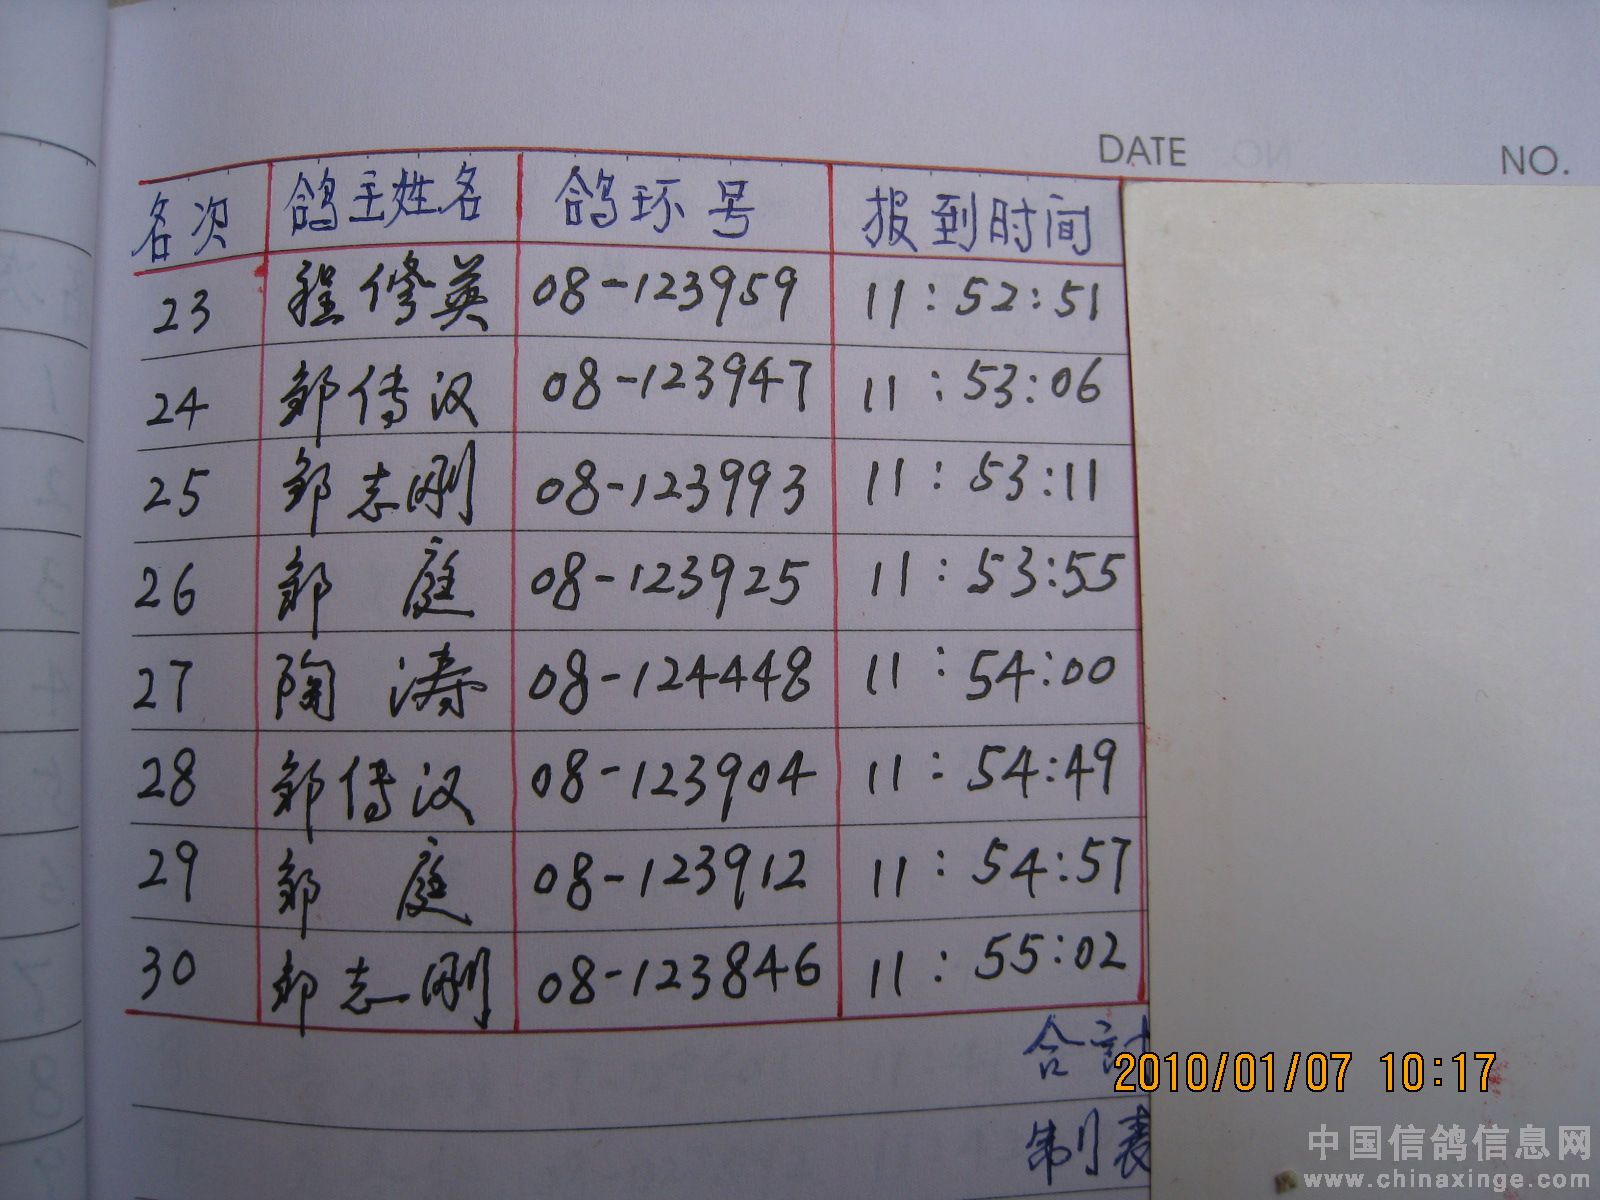 DATE
NO.
名次 鸽主姓名 鸽环号 报到时间
23 程修英 08-123959 11:52:51
24 邹传汉 08-123947 11:53:06
25 邹志刚 08-123993 11:53:11
26 邹庭 08-123925 11:53:55
27 陶涛 08-124448 11:54:00
28 邹传汉 08-123904 11:54:49
29 邹庭 08-123912 11:54:57
30 邹志刚 08-123846 11:55:02
合計
制表
2010/01/07 10:17
中国信鸽信息网
www.chinaxinge.com